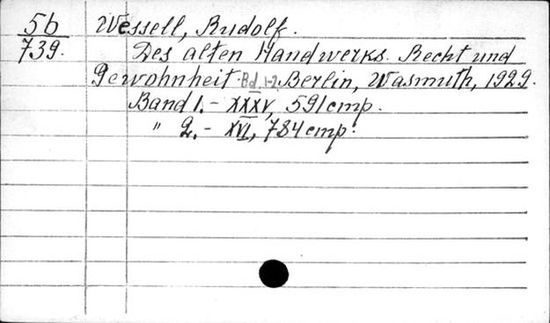 5б Wessell, Rudolf.
739. Des alten Handwerks Recht und
Gewohnheit. Bd. 1-2. Berlin, Wasmuth, 1929.
Band 1. - XXXV, 591 стр.
" 2. - XVI, 784 стр.